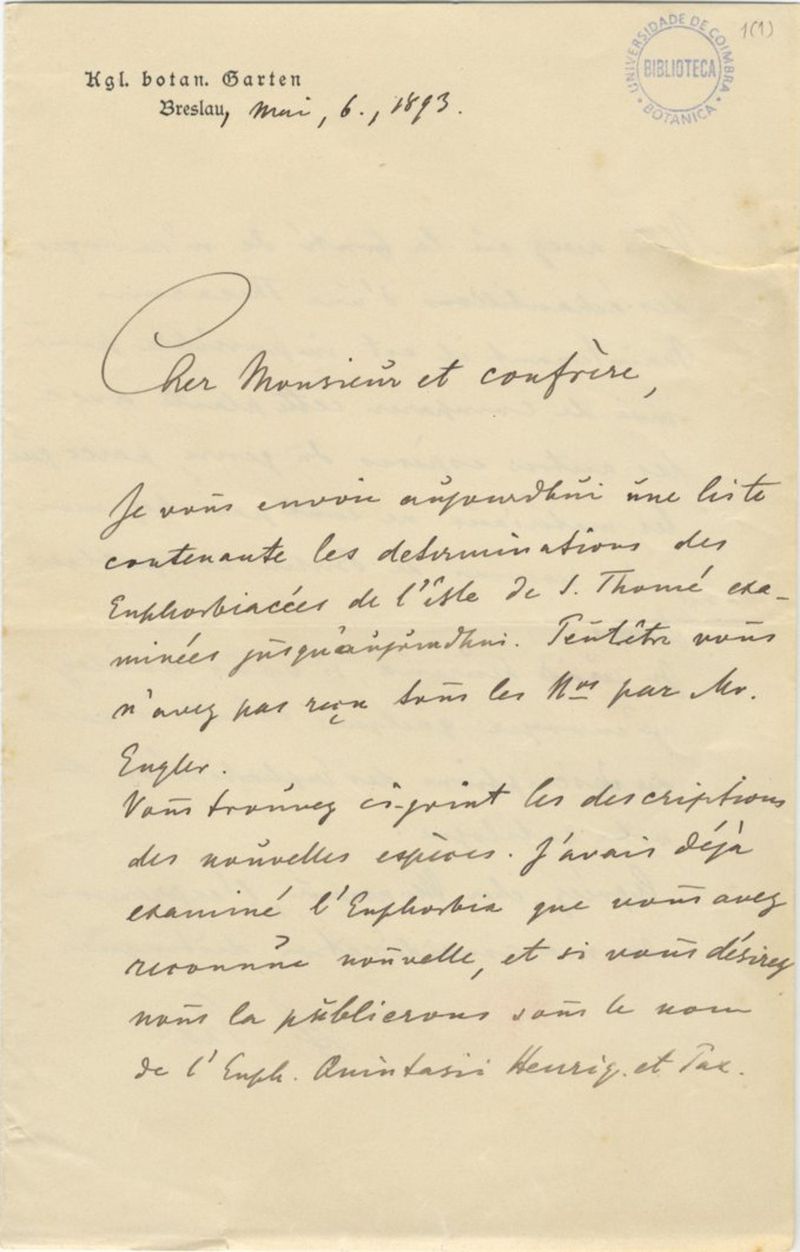 1(1)
UNIVERSIDADE DE COIMBRA
BIBLIOTECA
BOTANICA
Kgl. botan. Garten
Breslau, Mai, 6., 1893.
Cher Monsieur et confrère,
Je vous envoie aujourdhui une liste
contenante les determinations des
Euphorbiacées de l'îsle de S. Thomé exa-
minées jusqu'aujourdhui. Peutêtre vous
n'avez pas reçu tous les Nos par Mr.
Engler.
Vous trouvez ci-joint les descriptions
des nouvelles espèces. J'avais déjà
examiné l'Euphorbia que vous avez
reconnue nouvelle, et si vous désirez
nous la publierons sous le nom
de l'Euph. Quintasii Henriq. et Pax.